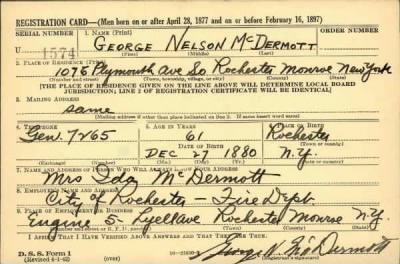 REGISTRATION CARD—(Men born on or after April 28, 1877 and on or before February 16, 1897)
SERIAL NUMBER 1. NAME (Print) ORDER NUMBER
U 1574 GEORGE NELSON MCDERMOTT
(First) (Middle) (Last)
2. PLACE OF RESIDENCE (Print)
1076 Plymouth Ave So Rochester Monroe New York
(Number and street) (Town, township, village, or city) (County) (State)
[THE PLACE OF RESIDENCE GIVEN ON THE LINE ABOVE WILL DETERMINE LOCAL BOARD
JURISDICTION; LINE 2 OF REGISTRATION CERTIFICATE WILL BE IDENTICAL]
3. MAILING ADDRESS
same
(Mailing address if other than place indicated on line 2. If same insert word same)
4. TELEPHONE 5. AGE IN YEARS 6. PLACE OF BIRTH
Gen. 7265 61 Rochester
DATE OF BIRTH (Town or county)
DEC 27 1880 N.Y.
(Exchange) (Number) (Mo.) (Day) (Yr.) (State or country)
7. NAME AND ADDRESS OF PERSON WHO WILL ALWAYS KNOW YOUR ADDRESS
Mrs Ida McDermott
8. EMPLOYER'S NAME AND ADDRESS
City of Rochester - Fire Dept.
9. PLACE OF EMPLOYMENT OR BUSINESS
Engine 5 - Lyell Ave Rochester Monroe N.Y.
(Number and street or R. F. D. number) (Town) (County) (State)
I AFFIRM THAT I HAVE VERIFIED ABOVE ANSWERS AND THAT THEY ARE TRUE.
D. S. S. Form 1
(Revised 4-1-42) (over)
George N. McDermott
(Registrant's signature)